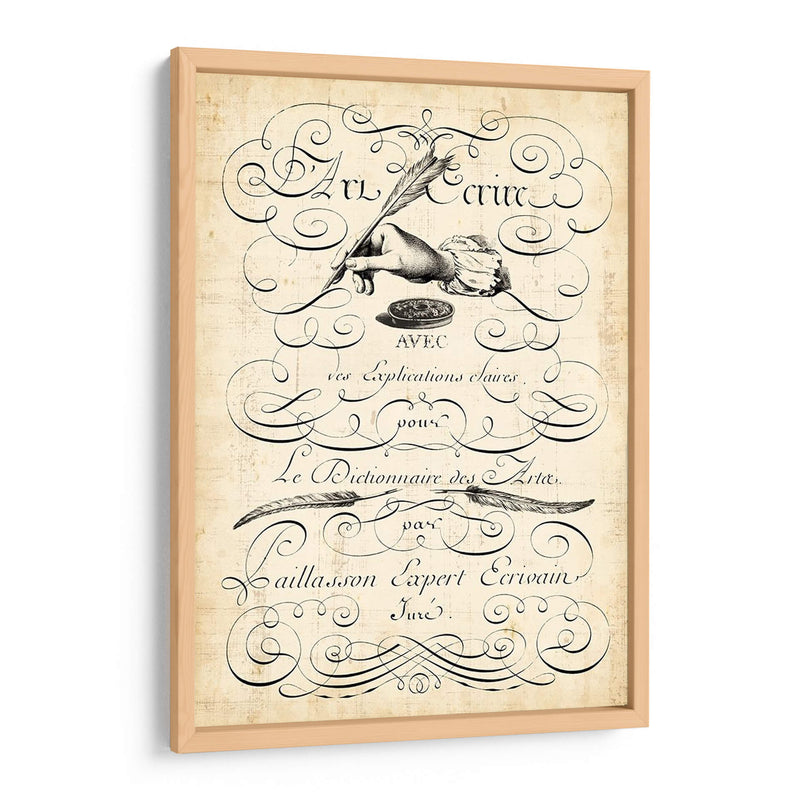 L'Art Ecrire
AVEC
des Explications claires.
pour
Le Dictionnaire des Arts.
par
Paillasson Expert Ecrivain
Juré.